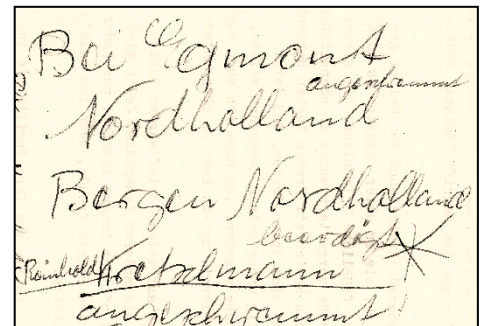 Bei Egmont
angeschwemmt
Nordholland
Bergen Nordholland
beerdigt
(Reinhold) Kretschmann
angeschwemmt!